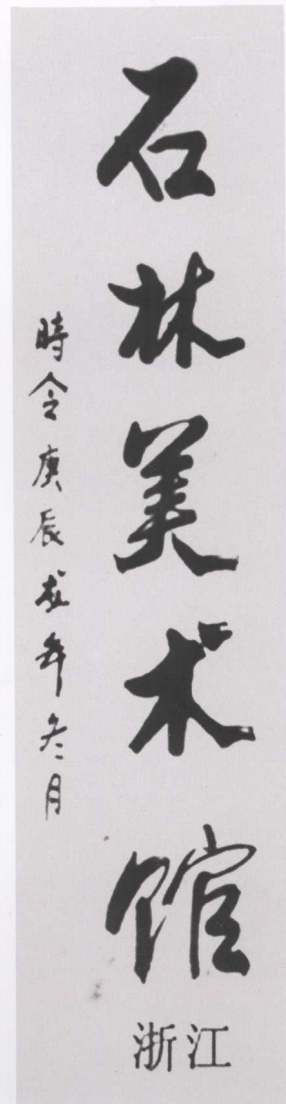 石林美术馆
時令庚辰龙年冬月
浙江